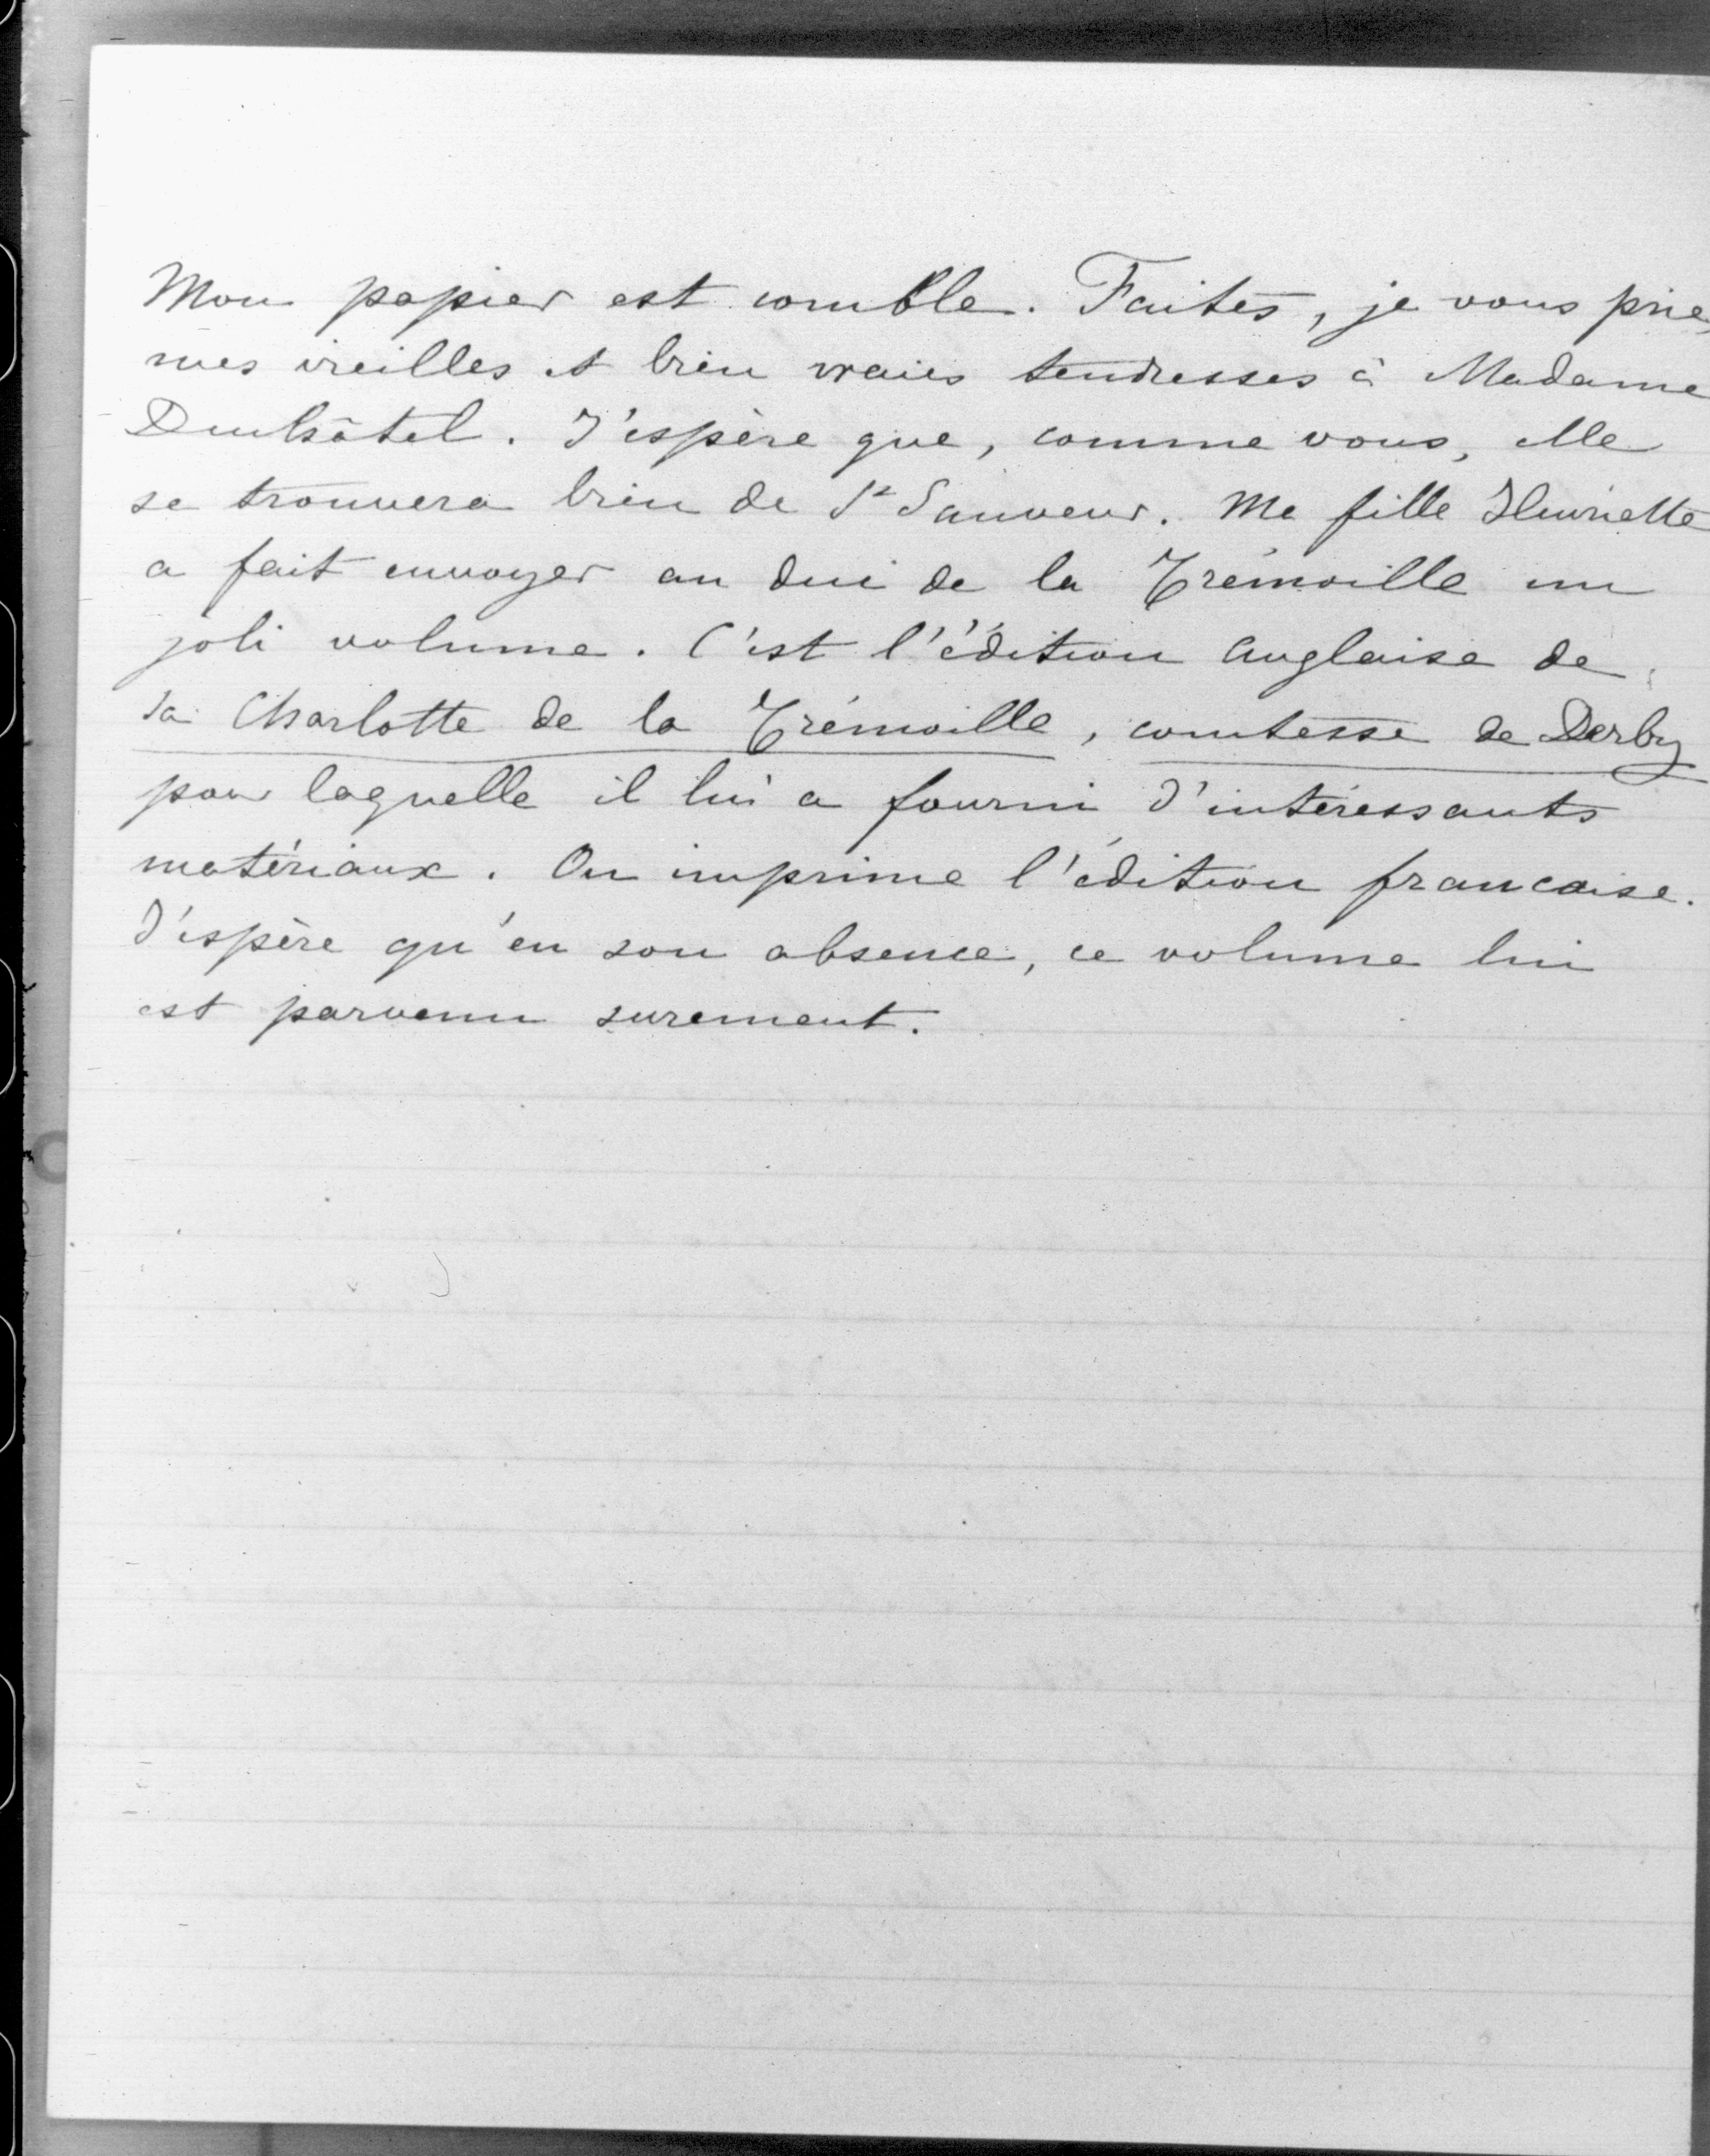 Mon papier est comble. Faites, je vous prie,
mes vieilles et bien vraies tendresses à Madame
Duchâtel. J'espère que, comme vous, elle
se trouvera bien de St Sauveur. Ma fille Henriette
a fait envoyer au duc de la Trémoille un
joli volume. C'est l'édition anglaise de
sa Charlotte de la Trémoille, comtesse de Derby
pour laquelle il lui a fourni d'intéressants
matériaux. On imprime l'édition francaise.
J'espère qu'en son absence, ce volume lui
est parvenu surement.